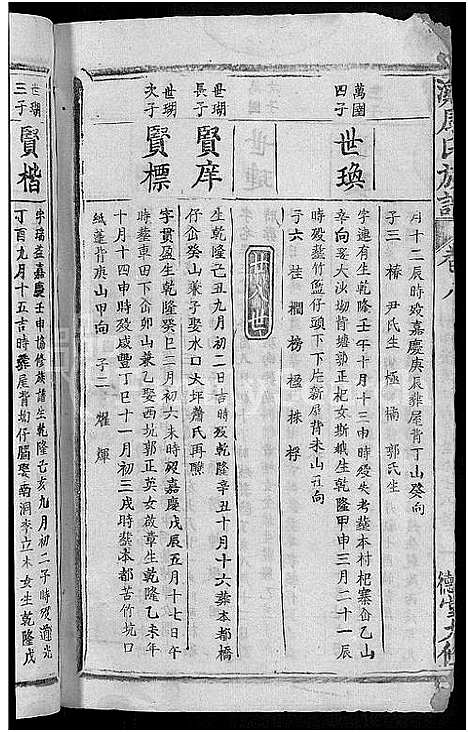 月十二辰時歿嘉慶庚辰葬屋背丁山癸向
子三 椿 尹氏生 極 楠 郭氏生
萬國四子
世瑍
字連有生乾隆壬午十月十三申時歿失考葬本村杞寨崙乙山
辛向娶大汾塅孰正杞女斯娥生乾隆甲申三月二十一辰
時歿葬竹藍仔頭下下片新屋背未山丑向
子六 桂 榈 榜 楹 株 桴
廿八世
世瑚長子
賢庠
生乾隆己丑九月初二日吉時歿乾隆辛丑十月十六葬本都橋
仔崙癸山兼子娶水口大坪蕭氏再聯
世瑚次子
賢標
字貫盈生乾隆癸巳三月初六未時歿嘉慶戊辰五月十七屯
時葬車田下崙卯山兼乙娶西坑郭正英女啟章生乾隆乙未年
十月十四申時歿咸豐丁巳十一月初三戌時葬本都苦竹坑口
紙蓬背庚山甲向 子二 燿 煇
世瑚三子
賢楷
字瑞益嘉慶壬申協修族譜生乾隆己亥九月初二子時歿道光
丁酉九月十五吉時葬屋背坳仔腦娶南洞李立木女生乾隆戊
氏族譜
卷八
德堂六修